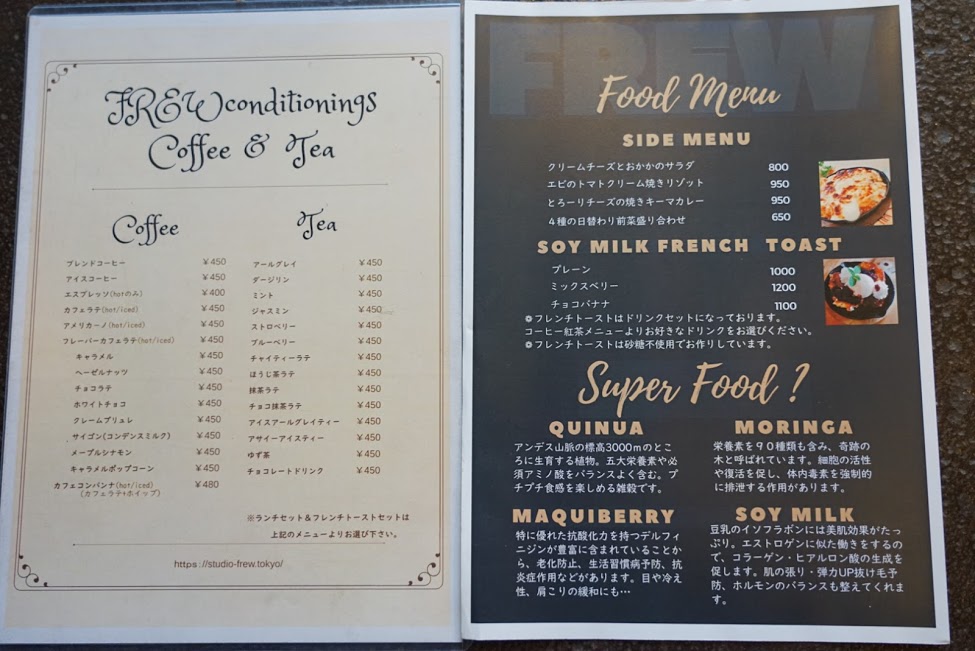 FREWconditionings
Coffee & Tea
Coffee
ブレンドコーヒー ￥450
アイスコーヒー ￥450
エスプレッソ(hotのみ) ￥400
カフェラテ(hot/iced) ￥450
アメリカーノ(hot/iced) ￥450
フレーバーカフェラテ(hot/iced) ￥450
キャラメル ￥450
ヘーゼルナッツ ￥450
チョコラテ ￥450
ホワイトチョコ ￥450
クレームブリュレ ￥450
サイゴン(コンデンスミルク) ￥450
メープルシナモン ￥450
キャラメルポップコーン ￥450
カフェコンパンナ(hot/iced) ￥480
(カフェラテ+ホイップ)
Tea
アールグレイ ￥450
ダージリン ￥450
ミント ￥450
ジャスミン ￥450
ストロベリー ￥450
ブルーベリー ￥450
チャイティーラテ ￥450
ほうじ茶ラテ ￥450
抹茶ラテ ￥450
チョコ抹茶ラテ ￥450
アイスアールグレイティー ￥450
アサイーアイスティー ￥450
ゆず茶 ￥450
チョコレートドリンク ￥450
※ランチセット＆フレンチトーストセットは
上記のメニューよりお選び下さい。
https://studio-frew.tokyo/
FREW
Food Menu
SIDE MENU
クリームチーズとおかかのサラダ 800
エビのトマトクリーム焼きリゾット 950
とろーりチーズの焼きキーマカレー 950
４種の日替わり前菜盛り合わせ 650
SOY MILK FRENCH TOAST
プレーン 1000
ミックスベリー 1200
チョコバナナ 1100
❁フレンチトーストはドリンクセットになっております。
コーヒー紅茶メニューよりお好きなドリンクをお選びください。
❁フレンチトーストは砂糖不使用でお作りしています。
Super Food ?
QUINUA
アンデス山脈の標高3000ｍのとこ
ろに生育する植物。五大栄養素や必
須アミノ酸をバランスよく含む。プ
チプチ食感を楽しめる雑穀です。
MORINGA
栄養素を９０種類も含み、奇跡の
木と呼ばれています。細胞の活性
や復活を促し、体内毒素を強制的
に排泄する作用があります。
MAQUIBERRY
特に優れた抗酸化力を持つデルフィ
ニジンが豊富に含まれていることか
ら、老化防止、生活習慣病予防、抗
炎症作用などがあります。目や冷え
性、肩こりの緩和にも…
SOY MILK
豆乳のイソフラボンには美肌効果がた
っぷり。エストロゲンに似た働きをするの
で、コラーゲン・ヒアルロン酸の生成を
促します。肌の張り・弾力UP抜け毛予
防、ホルモンのバランスも整えてくれま
す。